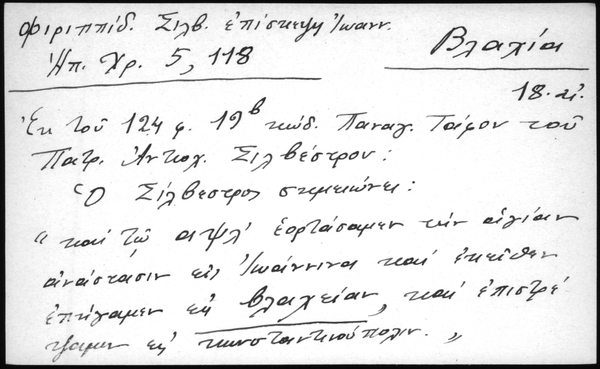 Φιλιππίδ. Σιλβ. ἐπίσκεψη Ἰωανν.
Ἠπ. Χρ. 5, 118
Βλαχία
18. αἰ.
Ἐκ τοῦ 124 φ. 19β κώδ. Παναγ. Τάφου τοῦ
Πατρ. Ἀντιοχ. Σιλβέστρου:
Ὁ Σίλβεστρος σημειώνει:
"καί τῷ αψλ' ἑορτάσαμεν τήν ἁγίαν
ἀνάστασιν εἰς Ἰωάννινα καί ἐκεῖθεν
ἐπήγαμεν εἰς Βλαχείαν, καί ἐπιστρέ
ψαμεν εἰς Κωνσταντινούπολιν."